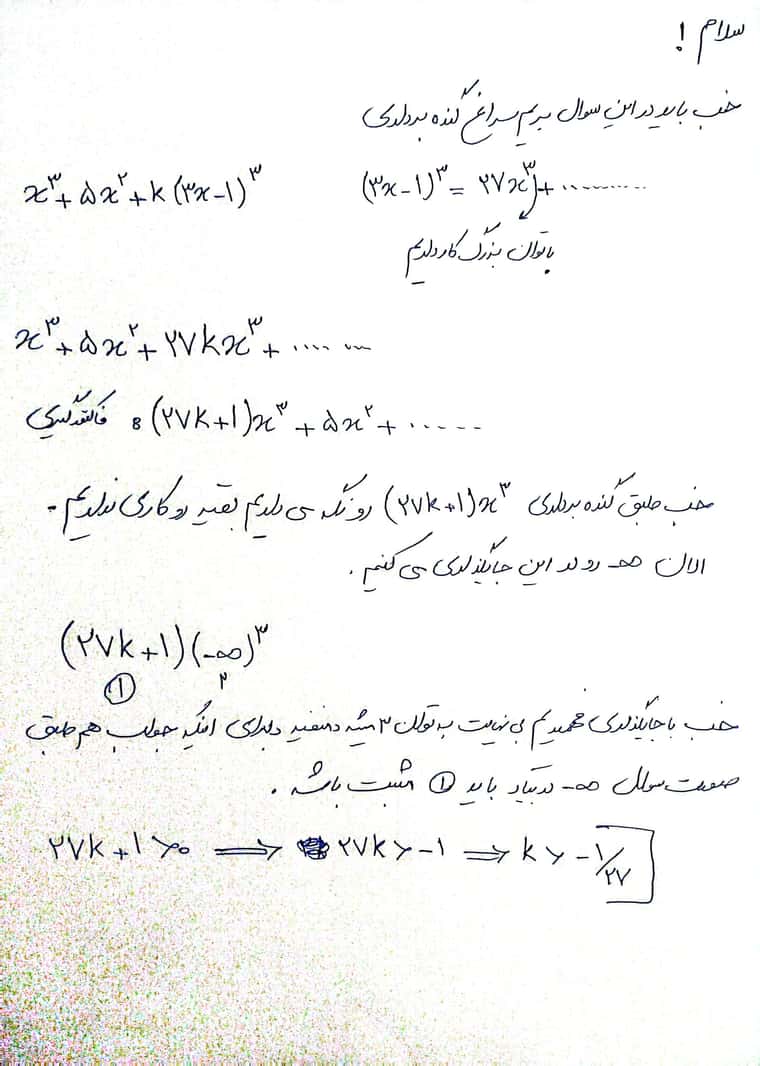 سلام !
خب باید در این سوال بریم سراغ گنده برداری
x³ + ۵x² + k(۳x-۱)³    (۳x-۱)³ = ۲۷x³ + ..........
با توان بزرگ کار داریم
x³ + ۵x² + ۲۷kx³ + .... ...
فاکتورگیری : (۲۷k+۱)x³ + ۵x² + .....
خب طبق گنده برداری (۲۷k+۱)x³ رو نگه می داریم بقیه رو کاری نداریم.
الان ∞- رو در این جایگذاری می کنیم.
(۲۷k+۱)(-∞)³
① ۲
خب با جایگذاری فهمیدیم بی نهایت به توان ۳ میشه منفیه و برای اینکه جواب هم طبق
صورت سوال ∞- در بیاد باید ① مثبت باشه.
۲۷k+۱>۰ ⟹ ۲۷k>-۱ ⟹ k>-۱/۲۷